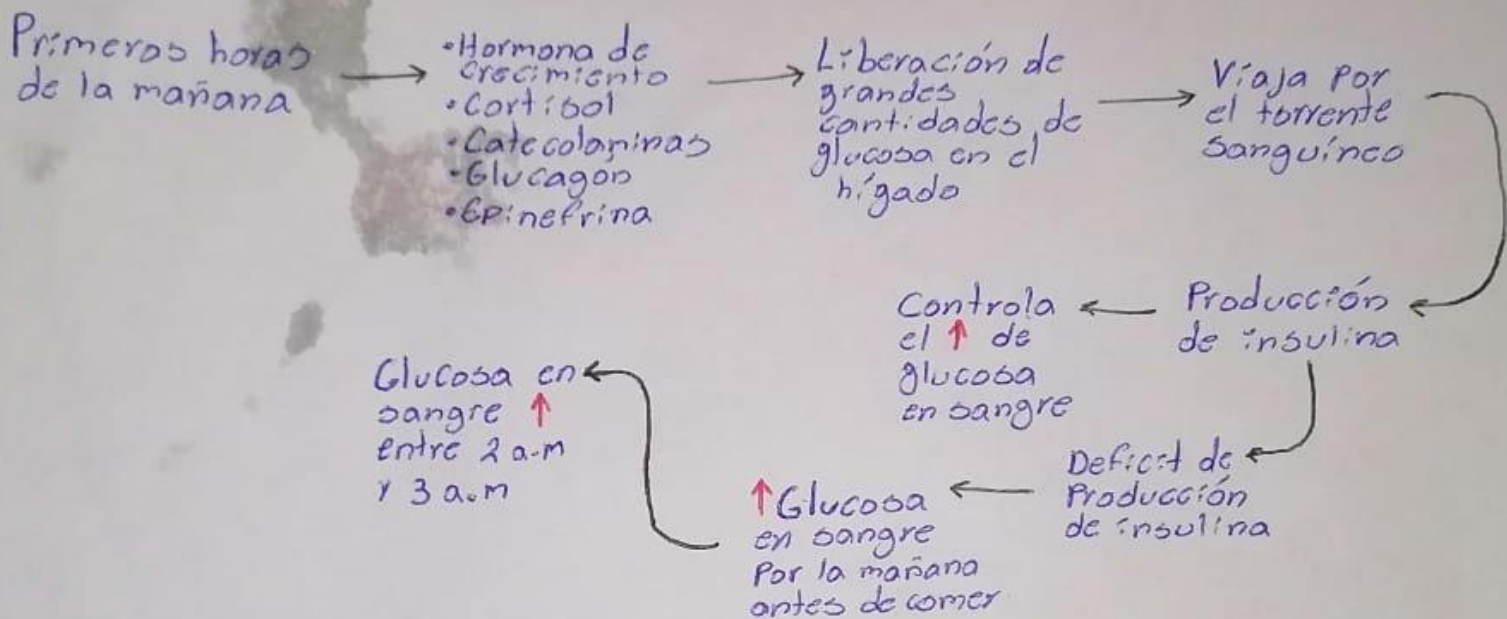 Primeras horas
de la mañana
•Hormona de
crecimiento
•Cortisol
•Catecolaminas
•Glucagon
•Epinefrina
Liberación de
grandes
cantidades de
glucosa en el
hígado
Viaja por
el torrente
sanguíneo
Producción
de insulina
Controla
el ↑ de
glucosa
en sangre
Deficit de
Producción
de insulina
↑Glucosa
en sangre
Por la mañana
antes de comer
Glucosa en
sangre ↑
entre 2 a.m
y 3 a.m